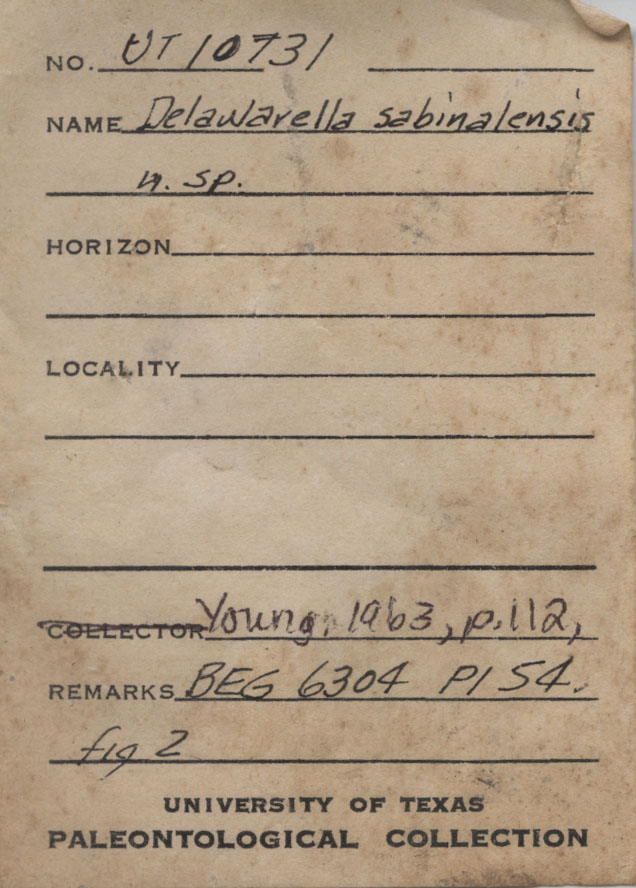 NO. UT 10731
NAME Delawarella sabinalensis
n. sp.
HORIZON
LOCALITY
COLLECTOR Young, 1963, p.112,
REMARKS BEG 6304 Pl 54.
fig 2
UNIVERSITY OF TEXAS
PALEONTOLOGICAL COLLECTION